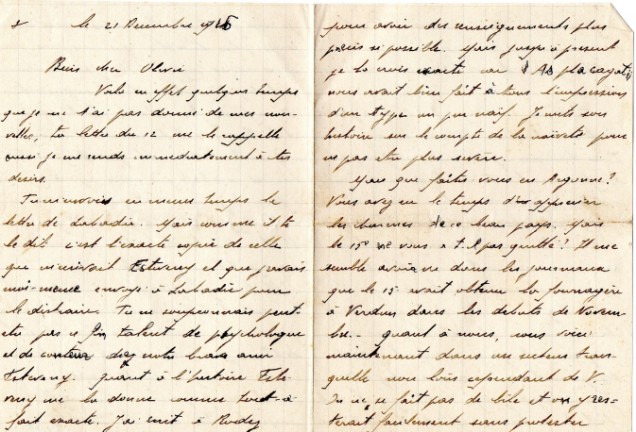 le 21 Decembre 1916
Bien cher Olivier
Voila en effet quelques temps
que je ne t'ai pas donné de mes nou-
velles, ta lettre du 12 me le rappelle
aussi je me rends immediatement à tes
desirs.
Tu m'envoies en meme temps la
lettre de Labadie. Mais comme il te
le dit c'est l'exacte copie de celle
que m'ecrivait Esteveny et que j'avais
moi-meme envoyé à Labadie pour
le distraire. Tu ne soupçonnais peut
etre pas ce fin talent de psychologue
et de conteur chez notre brave ami
Esteveny. Quant à l'histoire Este-
veny me la donne comme tout-à-
fait exacte. J'ai ecrit à Rodez
pour avoir des renseignements plus
précis si possible. Mais jusqu'à present
je la crois exacte car
nous avait bien fait à tous l'impression
d'un type un peu naif. Je mets son
histoire sur le compte de la naiveté pour
ne pas etre plus severe.
Mais que faites vous en Argonne?
Vous avez eu le temps d'en apprecier
les charmes de ce beau pays. Mais
le 15e ne vous a t-il pas quitté? Il me
semble avoir vu dans les journaux
que le 15 avait obtenu la fourragère
à Verdun dans les debuts de Novem
bre. quant à nous, nous voici
maintenant dans un secteur tran-
quille non loin cependant de V.
On ne se fait pas de bile et on y res-
terait facilement sans protester